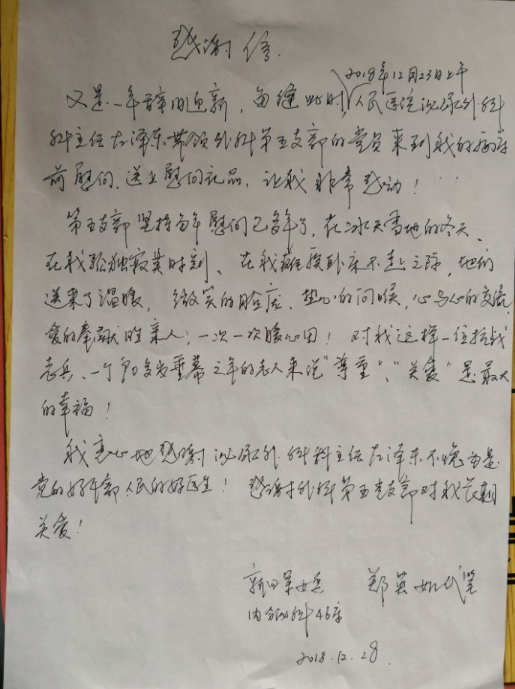 感谢信
2018年12月23日上午
又是一年辞旧迎新,每逢此时,人民医院泌尿外科
科主任左泽东带领外科第五支部的党员来到我的病床
前慰问、送上慰问礼品,让我非常感动!
第五支部坚持每年慰问已多年了,在冰天雪地的冬天、
在我孤独寂寞时刻、在我瘫痪卧床不起之际,他们
送来了温暖,微笑的脸庞,热心的问候,心与心的交流,
爱的奉献胜亲人;一次一次暖心田!对我这样一位抗战
老兵、一个90多岁垂暮之年的老人来说“尊重”、“关爱”是最大
的幸福!
我衷心地感谢泌尿外科科主任左泽东不愧为是
党的好干部人民的好医生!感谢外科第五支部对我长期
关爱!
新四军女兵 郑 代笔
内分泌科46床
2018.12.28